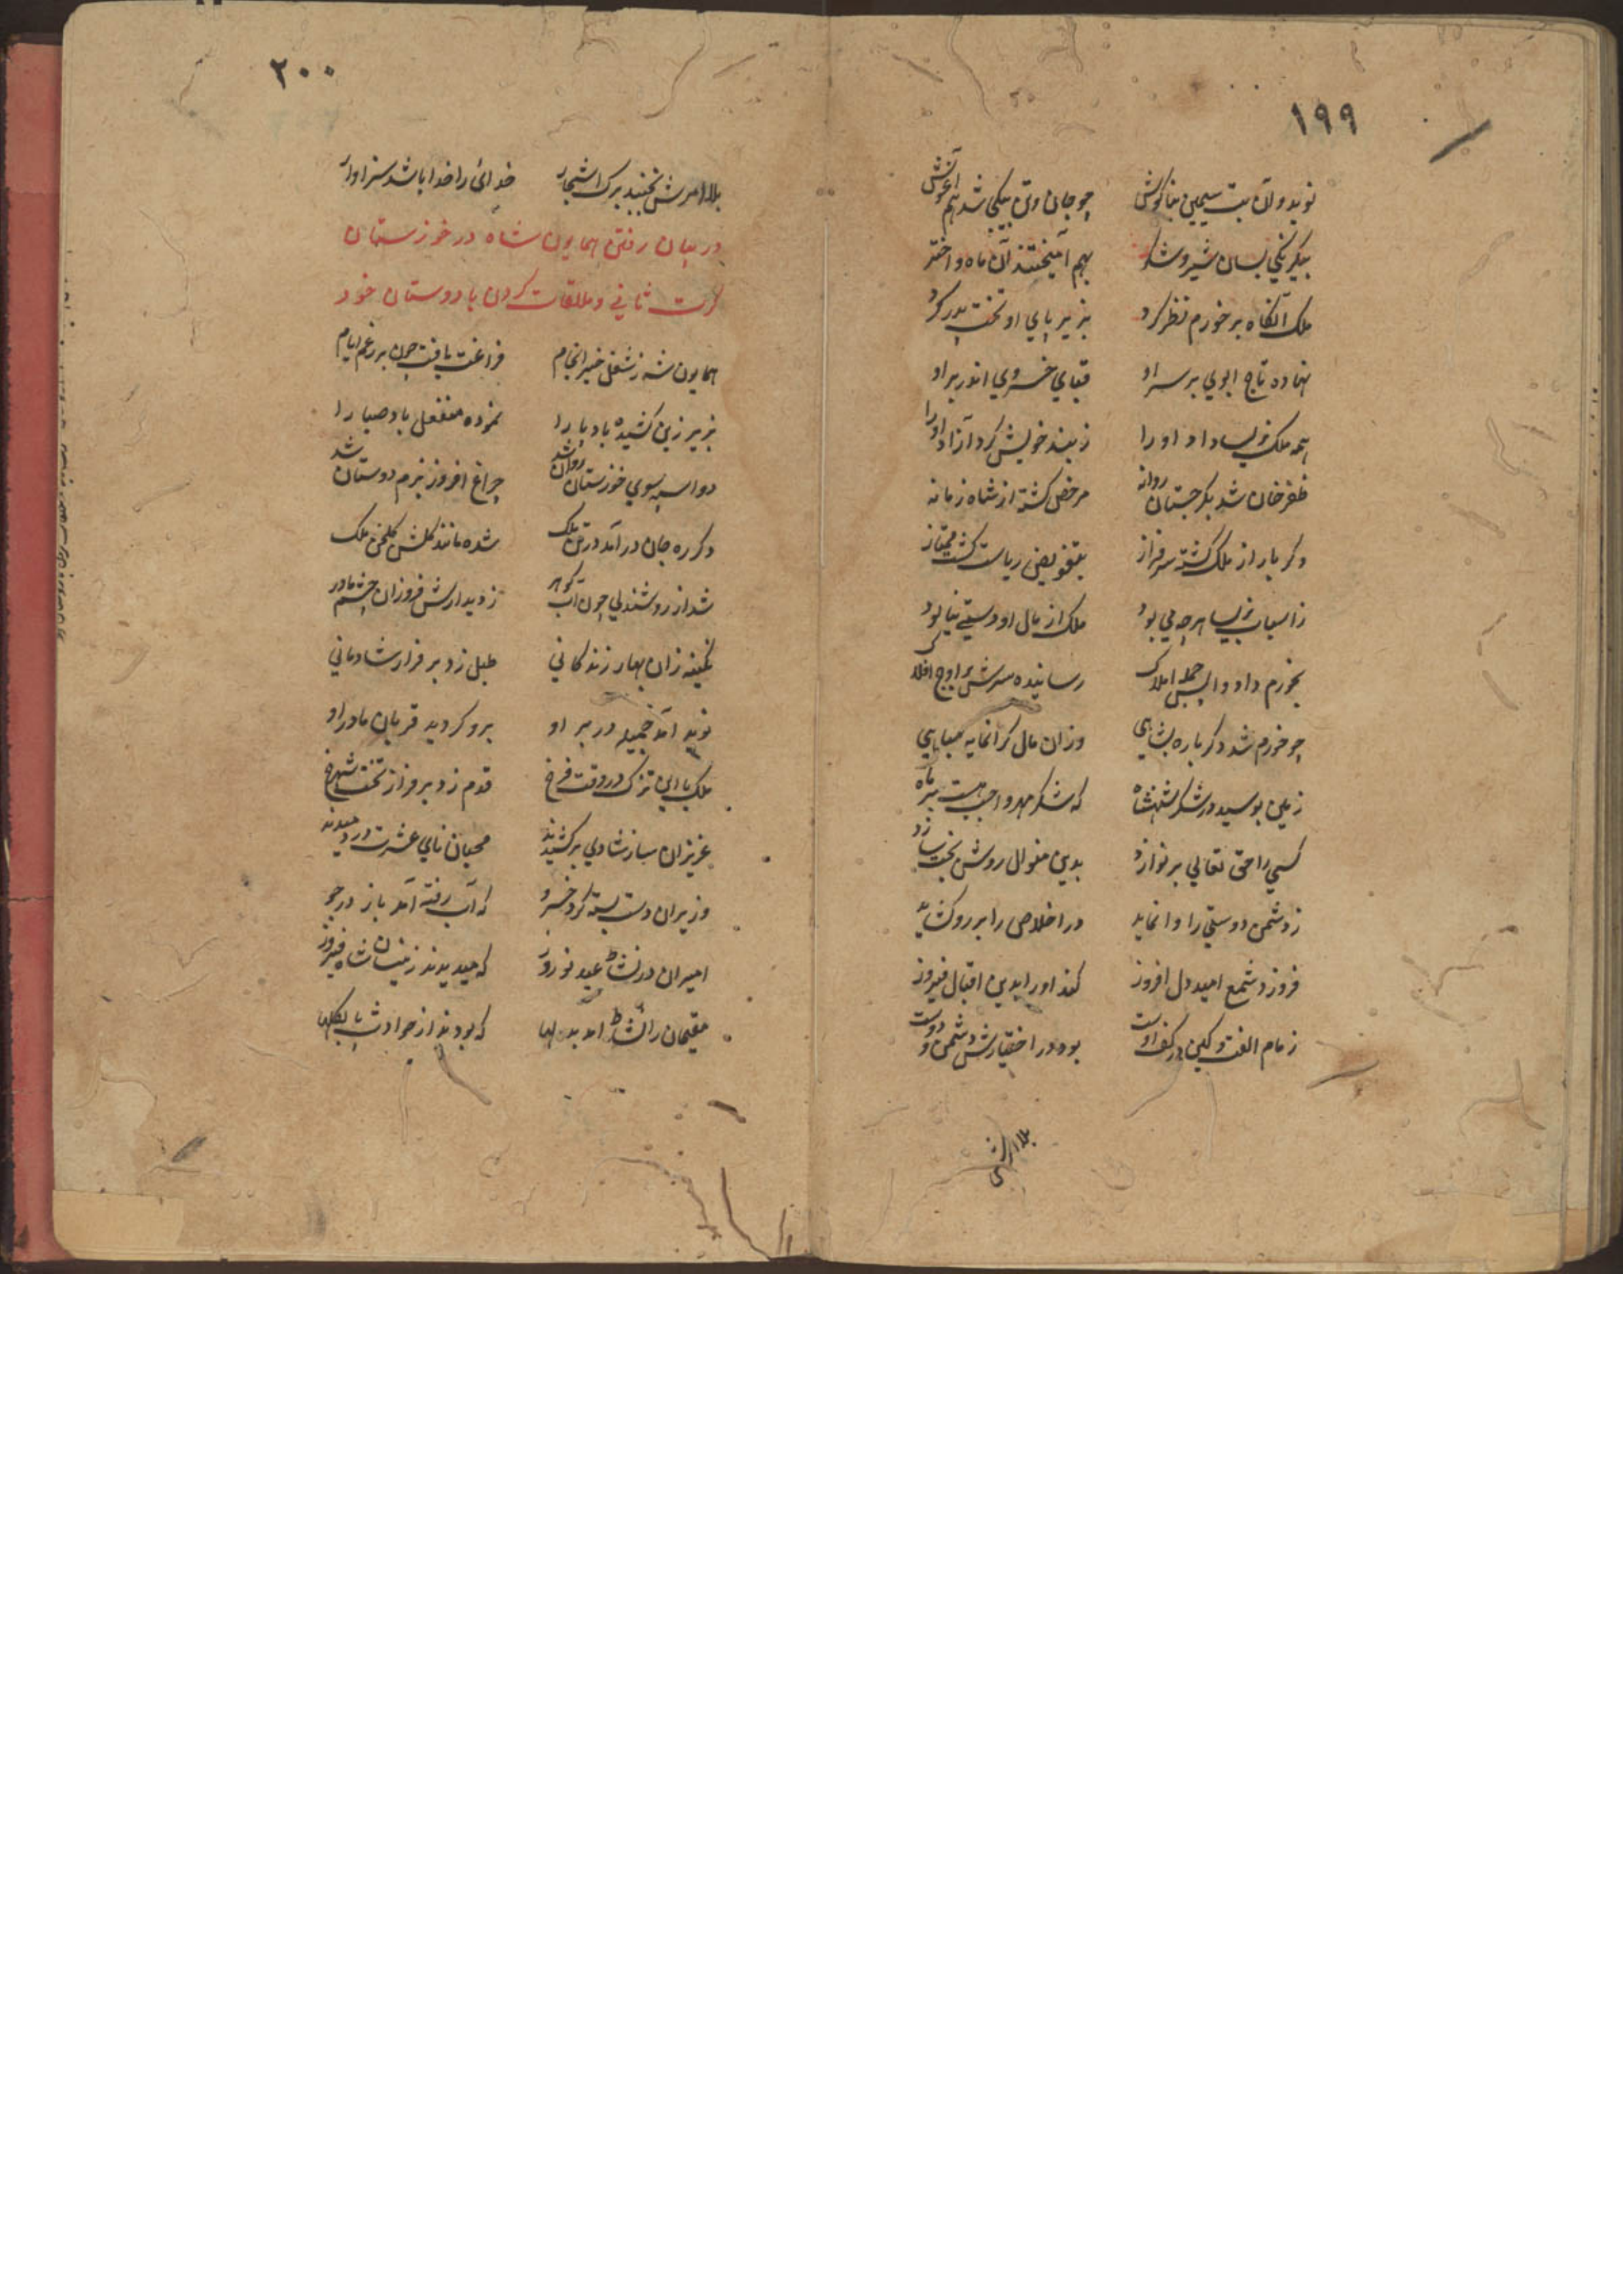 ۱۹۹
نوید و آن بت سیمین بناکوش چو جان و تن بیکی شد هم آغوشش
بیکرنکی بسان شیر و شکر بهم آمیختند آن ماه و اختر
ملک آنکاه بر خورم نظر کرد بزیر پای او تخت پدر کرد
نهاده تاج ابوی بر سر او قبای خسروی اندر بر او
همه ملک نیسا داد او را ز بند خویش کرد آزاد او را
ظفرخان شد بکرجستان روانه مرخص کشت از شاه زمانه
دکر بار از ملک کشته سرفراز بتفویض ریاست کشت ممتاز
ز اسباب نیسا هرچه می بود ملک از مال او دستی نیالود
بخورم داد واپس جمله املاک رسانیده سرش بر اوج افلاک
چو خورم شد دکر باره بشاهی وزان مال کرانمایه مباهی
زمین بوسید در شکر شهنشاه که شکر مهر واجب هست بر ماه
کسی را حق تعالی بر نوازد بدین منوال روشن بخت سازد
ز دشمن دوستی را وا نماید در اخلاص را بر رو کشاید
فروزد شمع امید دل افروز کند او را بدین اقبال فیروز
زمام الفت و کین در کف اوست بود در اختیارش دشمن و دوست
بلا امرش
۲۰۰
بلا امرش نجنبد برک اشجار خدائی را خدا باشد سزاوار
در بیان رفتن همایون شاه در خوزستان
کرت ثانی و ملاقات کردن با دوستان خود
همایون شه ز شغل خیر انجام فراغت یافت چون بر رغم ایام
بزیر زین کشیده باد پا را نموده منفعل باد صبا را
دو اسپه سوی خوزستان روان شد چراغ افروز بزم دوستان شد
دکر ره جان در آمد در تن ملک شده مانند کلشن کلخن ملک
شد از روشندلی چون آب کوهر ز دیدارش فروزان چشم مادر
نکینه زان بهار زندکانی طبل زد بر فراز شادمانی
نوید آمد جمیله در بر او برو کردید قربان مادر او
ملک با این تزک در وقت فرخ قدم زد بر فراز تخت شهرخ
عزیزان ساز شادی بر کشیدند محبان نای عشرت در دمیدند
وزیران دست بسته کرد خسرو که آب رفته آمد باز در جو
امیران در نشاط عید نوروز که میدیدند زینسان شاه فیروز
مقیمان را نشاط آمد بدلها که بودند از حوادث پا بکلها